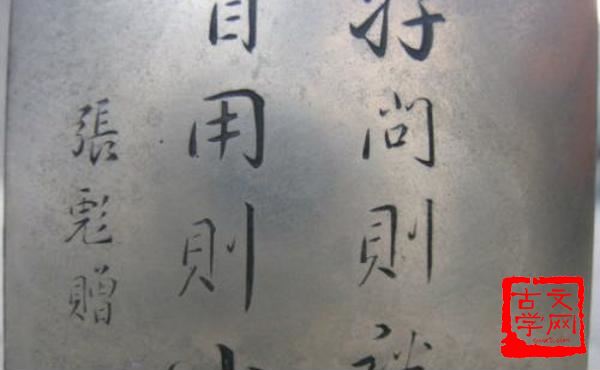 好問則
自用則
張彪贈
古文
学网